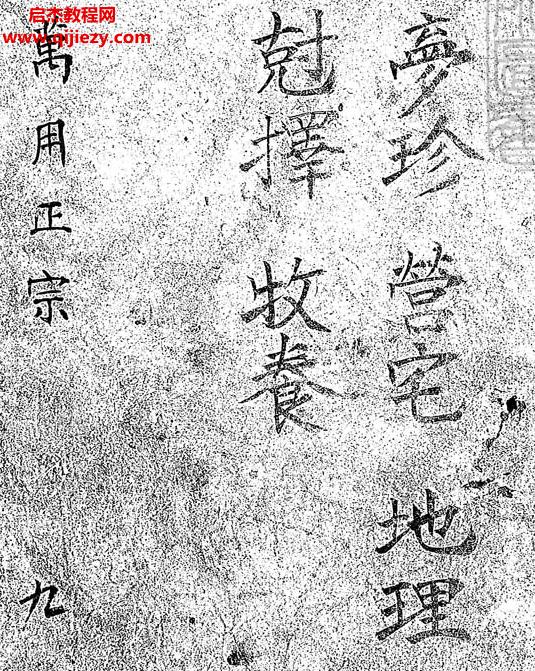 启杰教程网
www.qijiezy.com
夢珍 營宅 地理
尅擇 牧養
萬用正宗 九